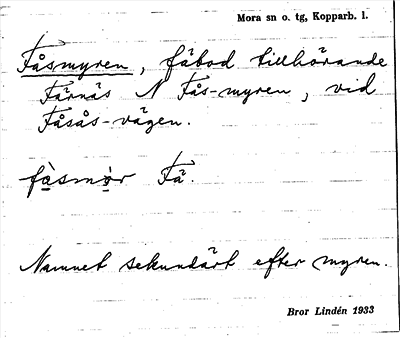 Mora sn o. tg, Kopparb. l.
Fåsmyren, fäbod tillhörande
Färnäs N Fås-myren, vid
Fåsås-vägen.
fàsmòr Fä.
Namnet sekundärt efter myren.
Bror Lindén 1933